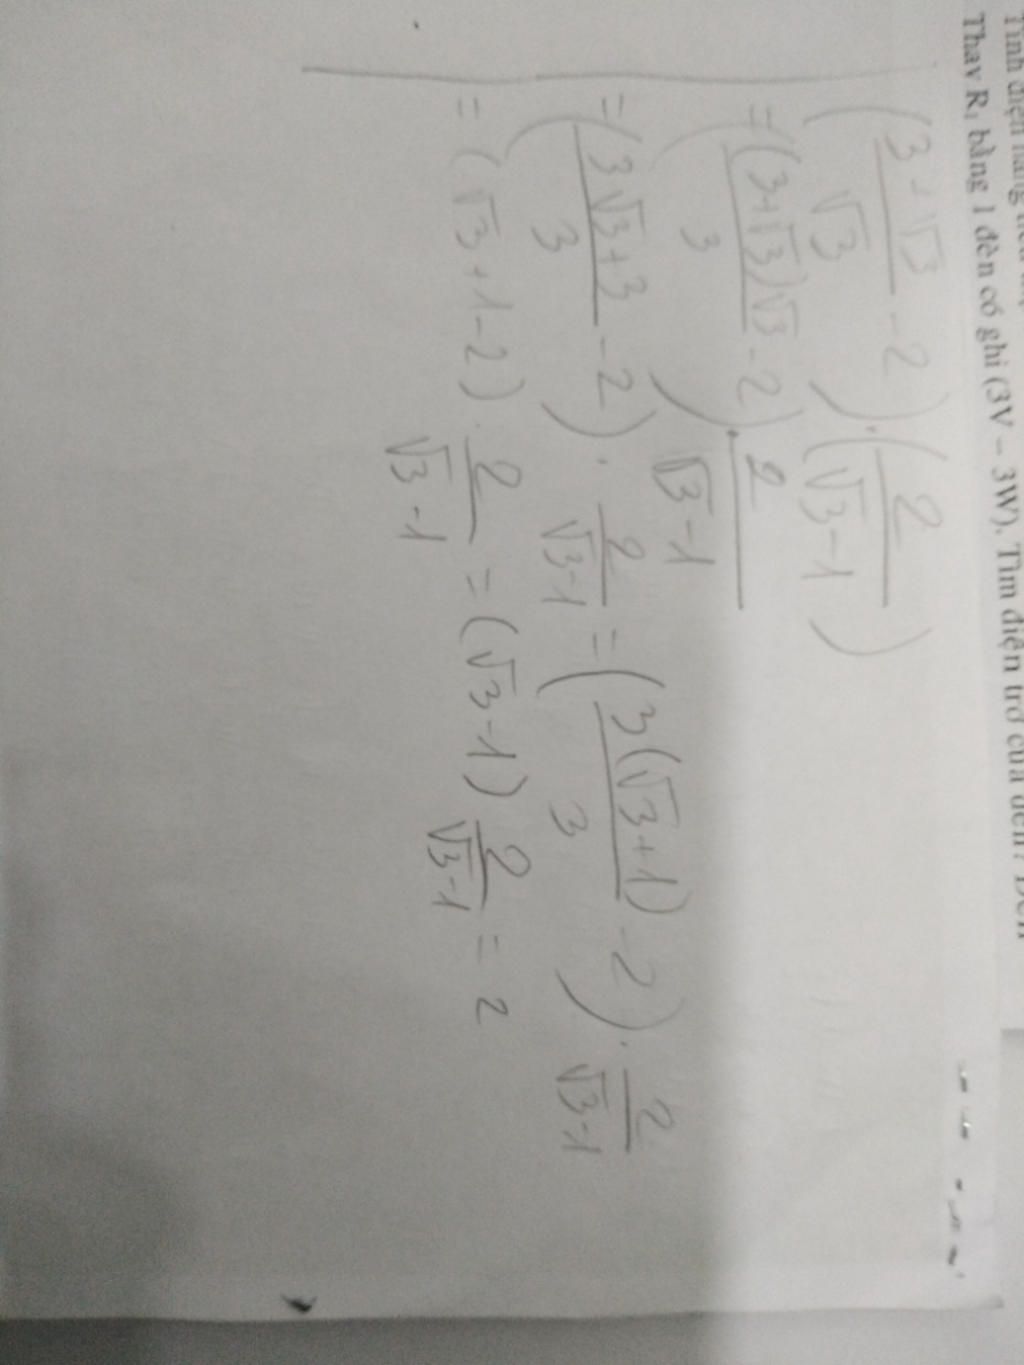 Thay R₁ bằng 1 đèn có ghi (3V – 3W). Tìm điện trở của đèn? Đèn
(3+√3/√3 - 2) · (2/√3-1)
= ((3+√3)√3/3 - 2) · 2/√3-1
= (3√3+3/3 - 2) · 2/√3-1 = (3(√3+1)/3 - 2) · 2/√3-1
= (√3+1-2) · 2/√3-1 = (√3-1) 2/√3-1 = 2